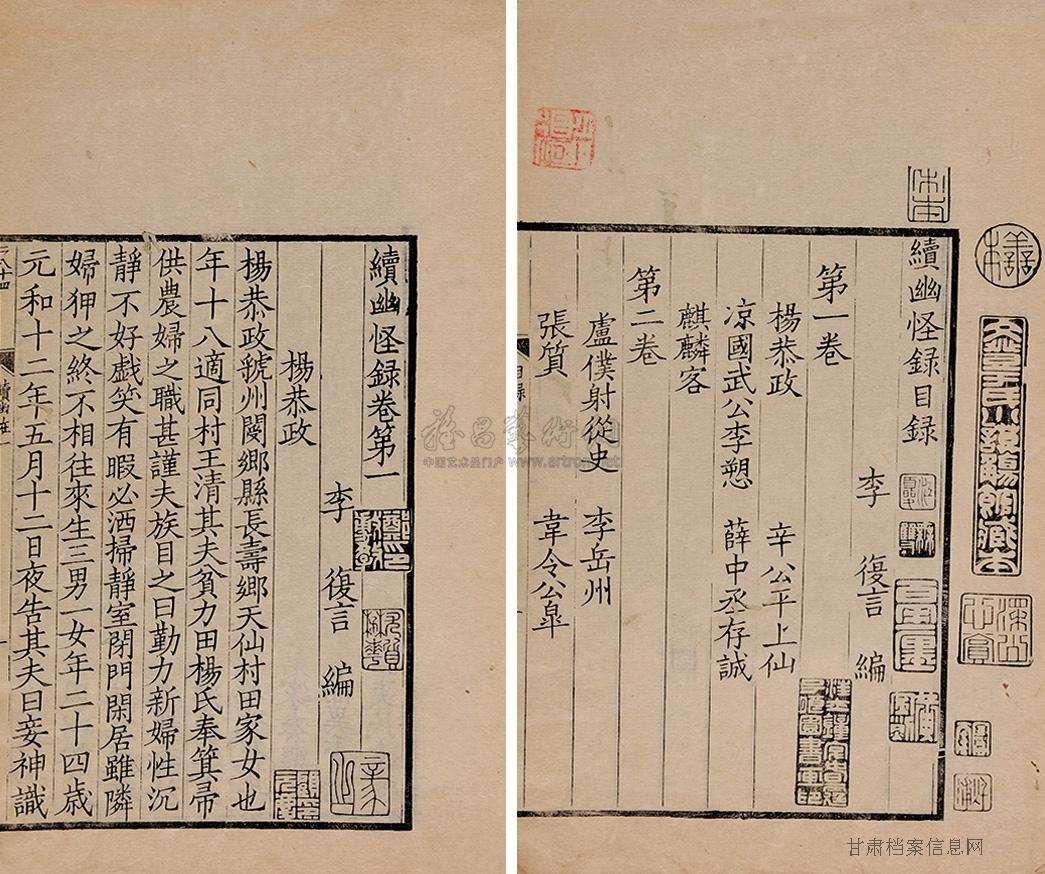 續幽怪录目录
李 復言 編
第一卷
楊恭政 辛公平上仙
凉國武公李愬 薛中丞存誠
麒麟客
第二卷
盧僕射從史 李岳州
張質 韋令公皐
續幽怪録卷第一
李 復言 編
楊恭政
楊恭政虢州閿鄉縣長壽鄉天仙村田家女也
年十八適同村王清其夫貧力田楊氏奉箕帚
供農婦之職甚謹夫族目之曰勤力新婦性沉
靜不好戲笑有暇必洒掃靜室閉門閑居雖隣
婦狎之終不相往來生三男一女年二十四歲
元和十二年五月十二日夜告其夫曰妾神識
中国艺术品门户 www.artron.net
甘肃档案信息网